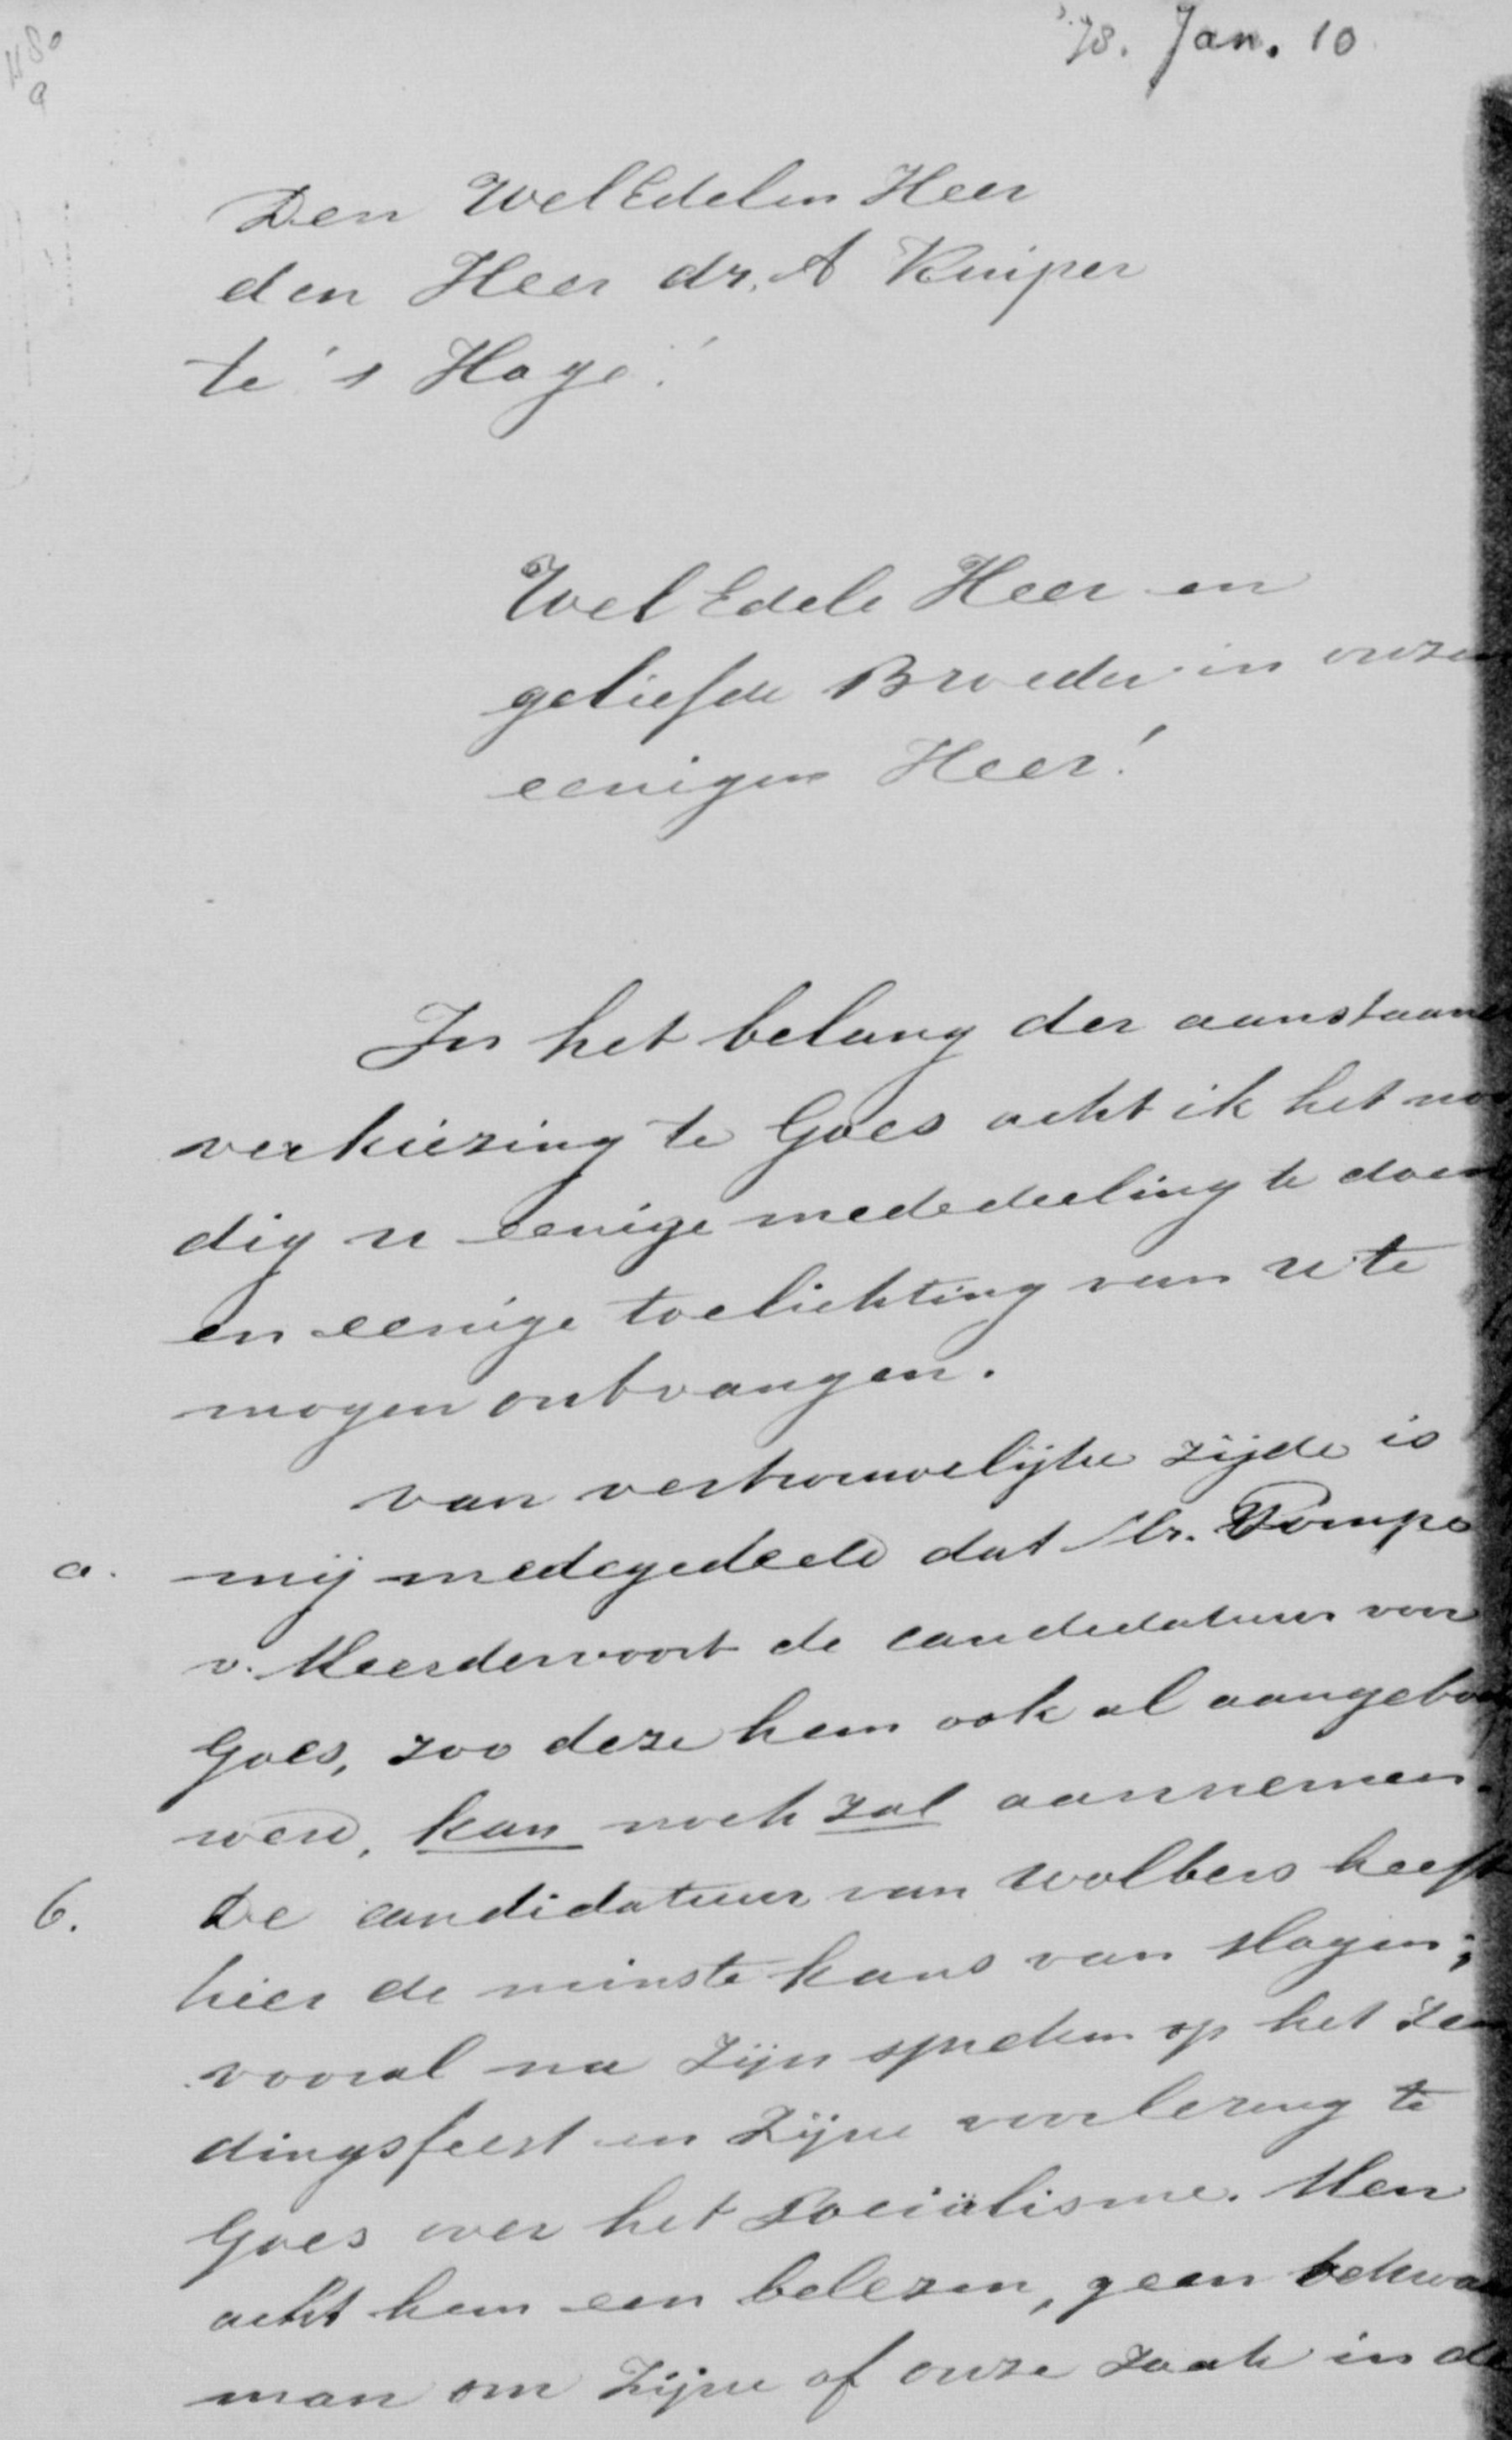 '78. Jan. 10
1180
a
Den WelEdelen Heer
den Heer dr. A Kuiper
te 's Hage!
WelEdele Heer en
geliefde Broeder in onzen
eenigen Heer!
In het belang der aanstaan
verkiezing te Goes acht ik het noo
dig u eenige mededeeling te doen
en eenige toelichting van u te
mogen ontvangen.
van vertrouwelijke zijde is
a. mij medegedeeld dat Mr. Pompe
v. Meerdervoort de candidatuur van
Goes, zoo deze hem ook al aangebo
werd, kan noch zal aannemen.
b. De candidatuur van Wolbers heeft
hier de minste kans van slagen;
vooral na zijn spreken op het Zen
dingsfeest en zijne voorlezing te
Goes over het Socialisme. Men
acht hem een belezen, geen bekwa
man om zijne of onze zaak in de